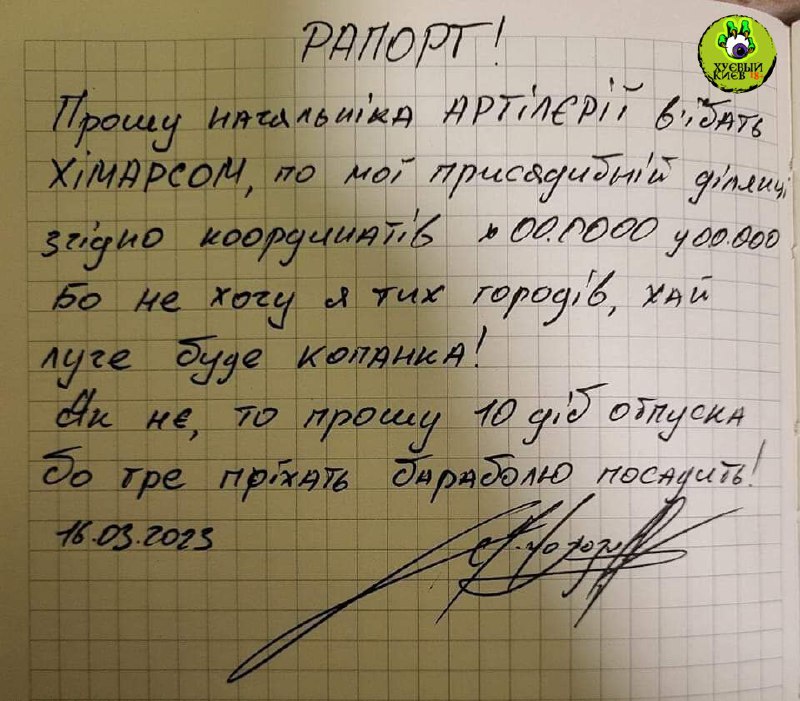 РАПОРТ!
ХУЄВЫЙ
КИЄВ 18+
Прошу начальніка АРТІЛЄРІЇ в'їбать
ХІМАРСОМ, по мої присадибній ділянці
згідно координатів х00.0000 у00.000
Бо не хочу я тих городів, хай
луче буде копанка!
Як нє, то прошу 10 діб отпуска
бо тре пріхать бараболю посадить!
16.03.2023